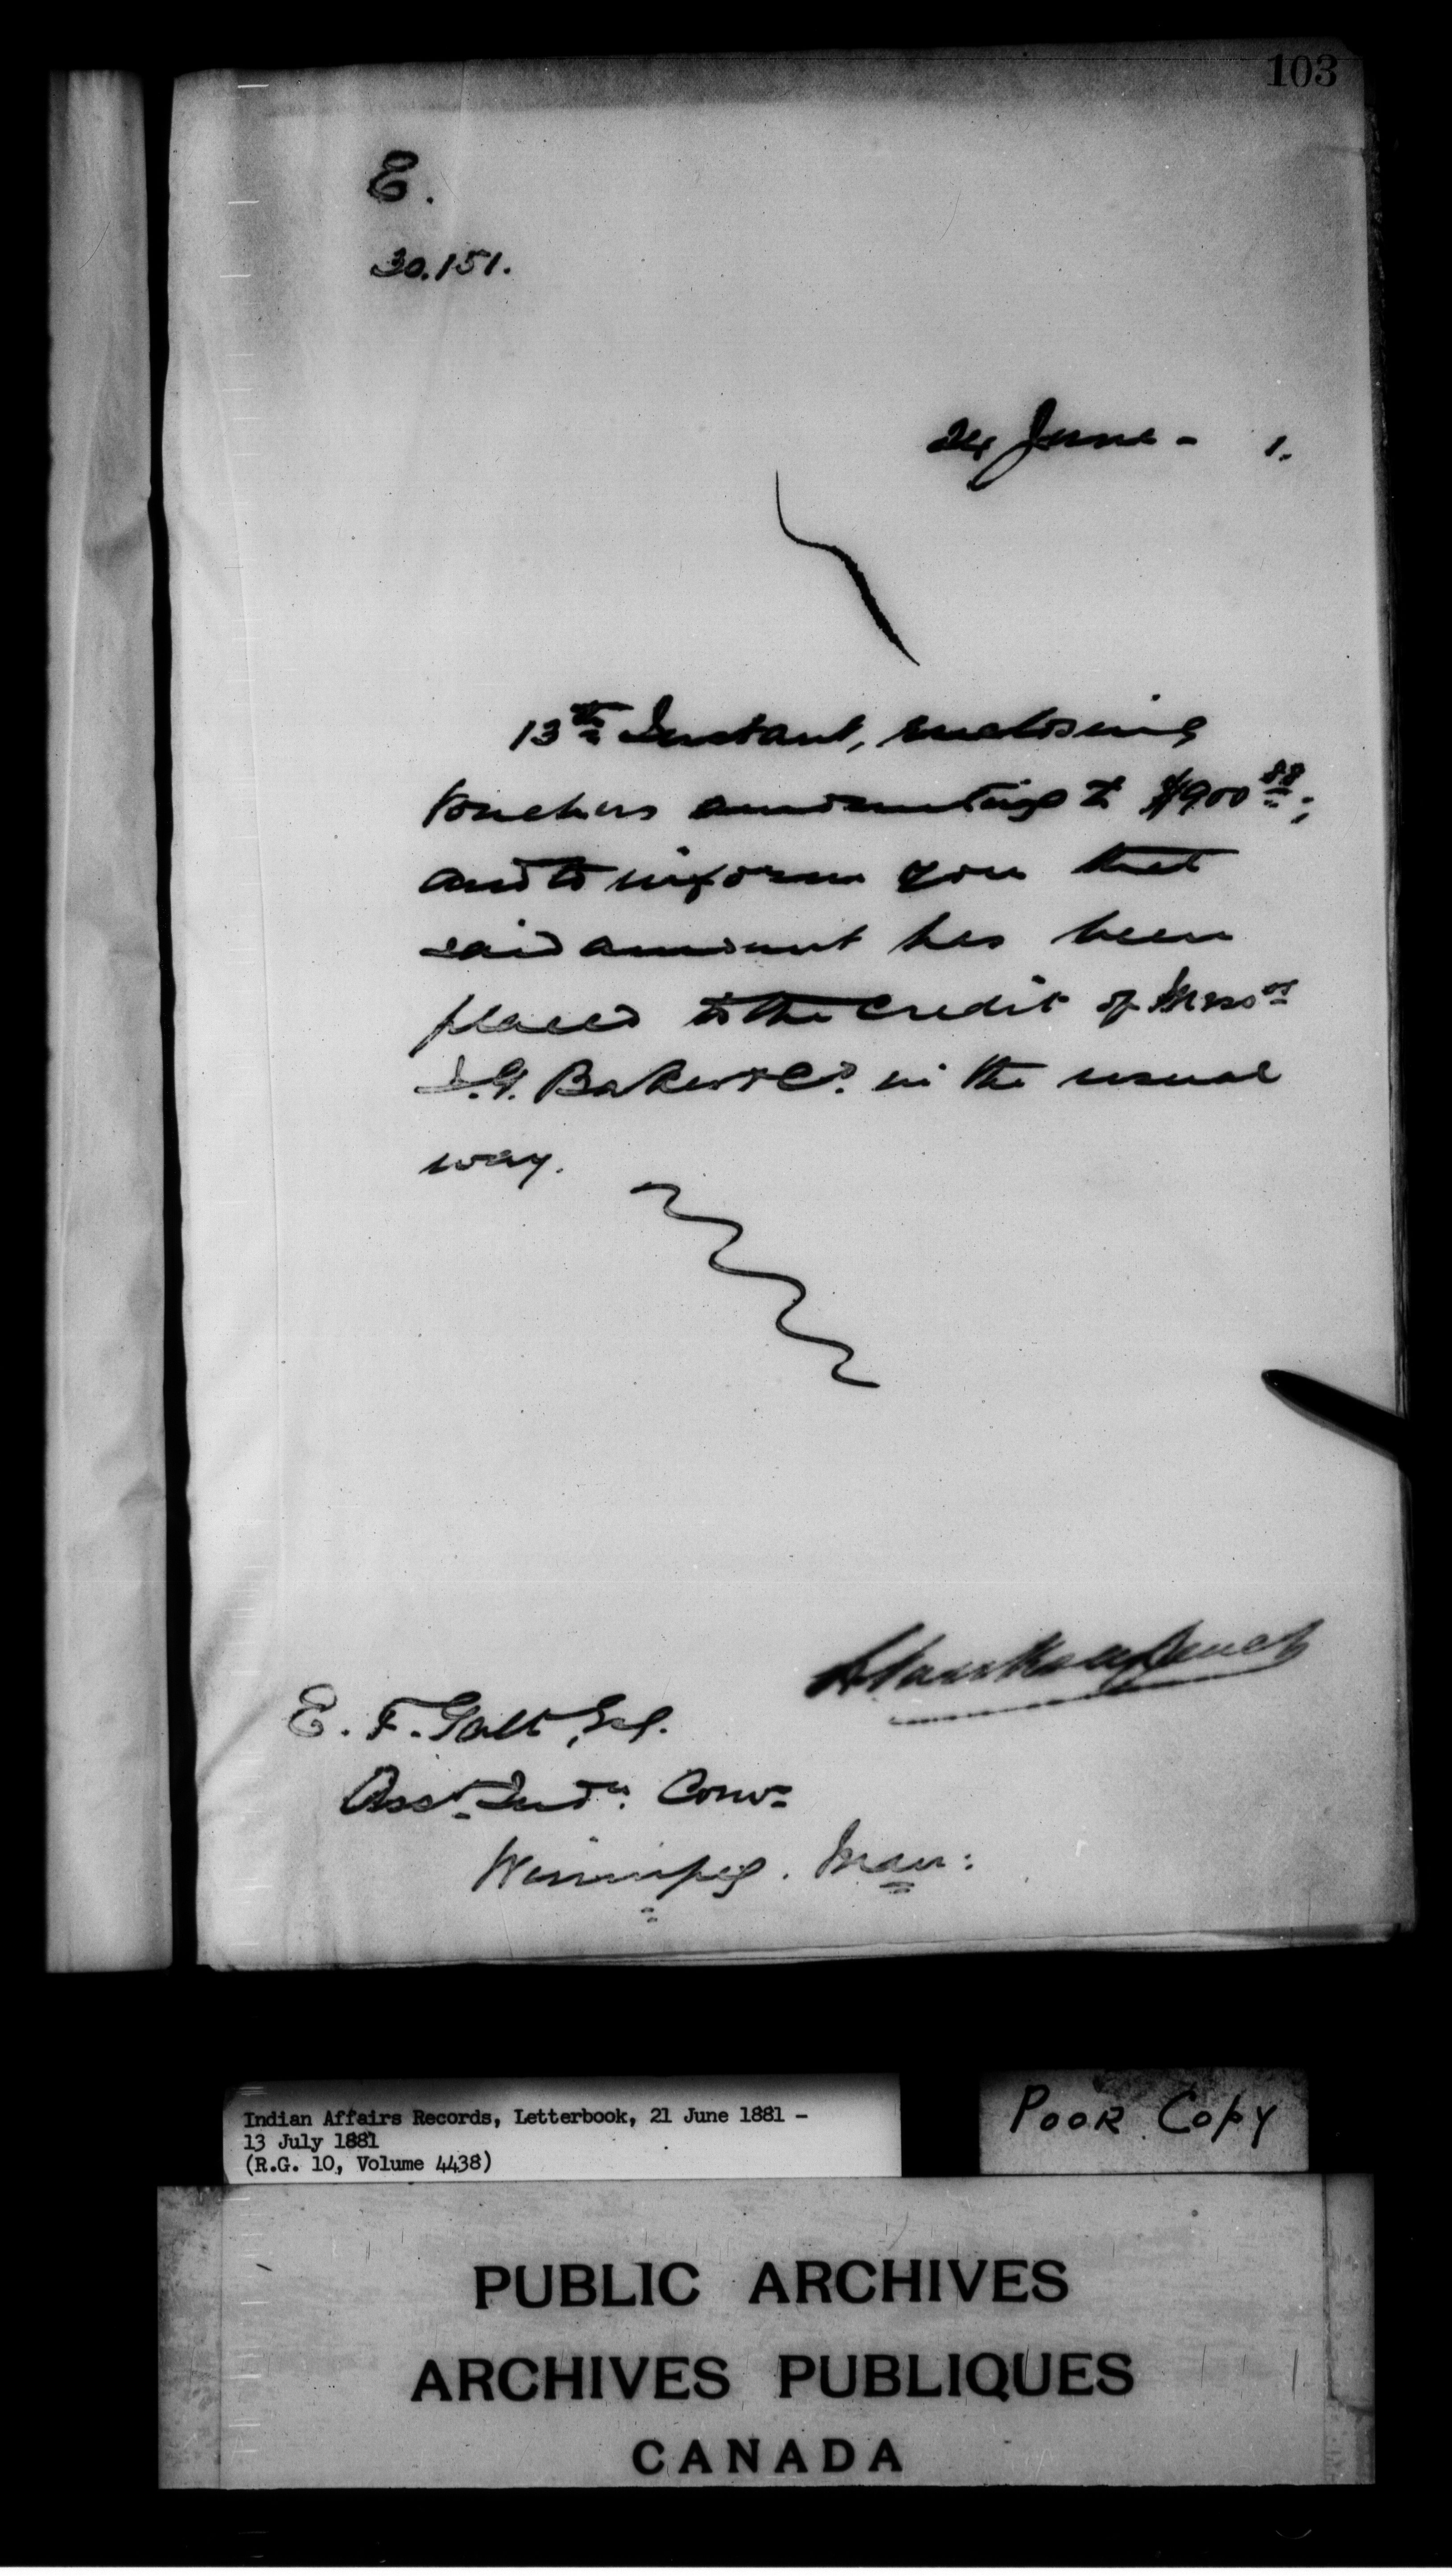 103
E.
30.151.
24 June - 1.
13th Instant, enclosing
vouchers amounting to $900 88;
and to inform you that
said amount has been
placed to the Credit of Messrs
I.G. Baker & Co. in the usual
way.
E. F. Galt, Esq.
Asst. Indn. Comr
Winnipeg. Man:
Indian Affairs Records, Letterbook, 21 June 1881 -
13 July 1881
(R.G. 10, Volume 4438)
POOR COPY
PUBLIC ARCHIVES
ARCHIVES PUBLIQUES
CANADA